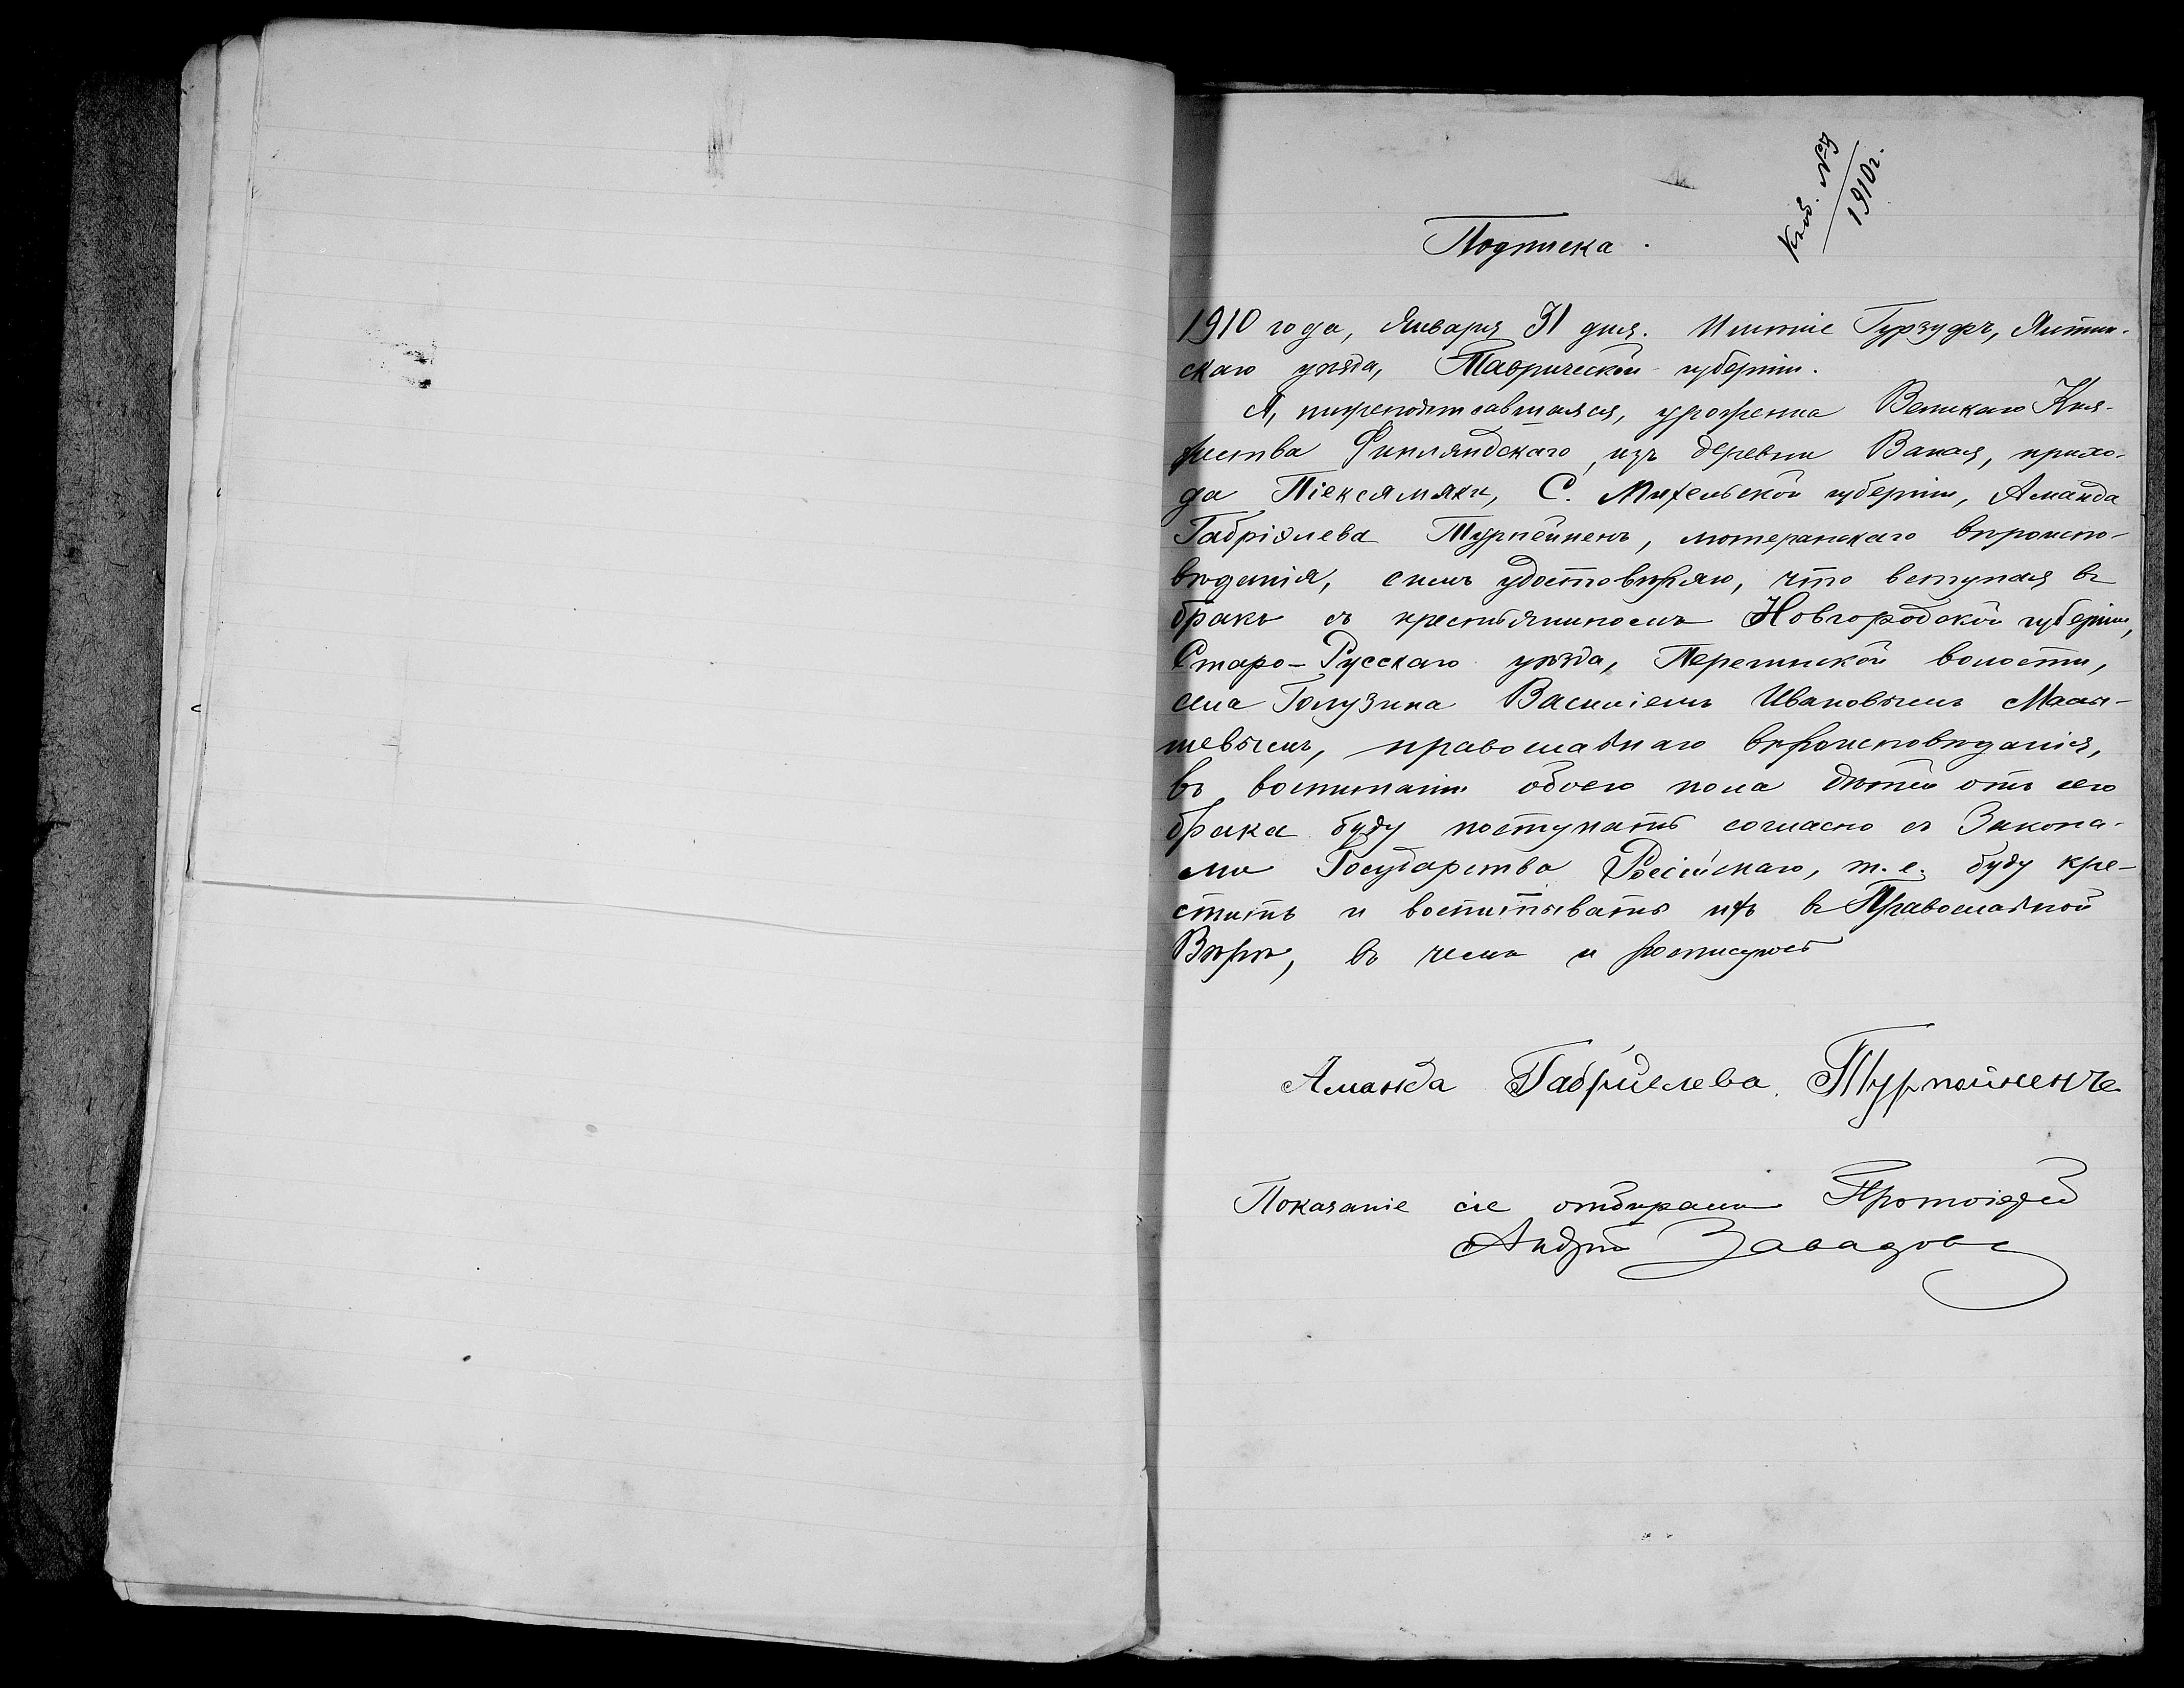 Къ об. № 3
1910 г.
Подписка.
1910 года, Января 31 дня. Имѣніе Гурзуфъ, Ялтин-
скаго уѣзда, Таврической губерніи.
Я, нижеподписавшаяся, уроженка Великаго Кня-
жества Финляндскаго, изъ деревни прихо-
да Піексямяки, С. Михельской губерніи, Аманда
Габріэлева Турпейненъ, лютеранскаго вѣроиспо-
вѣданія, симъ удостовѣряю, что вступая въ
бракъ съ крестьяниномъ Новгородской губерніи,
Старо-Русскаго уѣзда, Перегинской волости,
села Голузина Василіемъ Ивановымъ
православнаго вѣроисповѣданія,
въ воспитаніи обоего пола дѣтей отъ сего
брака буду поступать согласно съ Закона-
ми Государства Россійскаго, т.е. буду кре-
стить и воспитывать ихъ въ Православной
Вѣрѣ, въ чемъ и росписуюсь
Аманда Габриелева Турпойненъ
Показаніе сіе отбиралъ Протоіерей
Андрей Завадовс